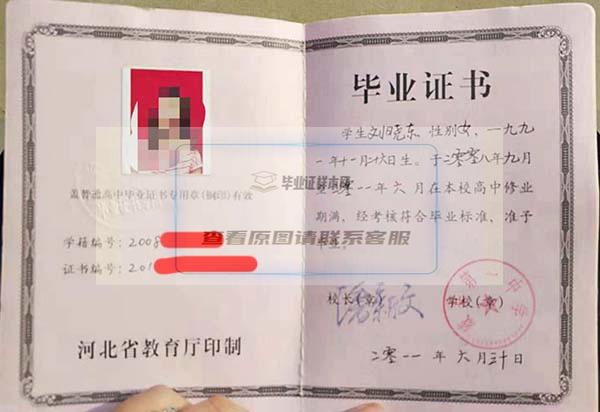 盖普通高中毕业证书专用章(钢印)有效
学籍编号：2008
证书编号：201
河北省教育厅印制
毕业证书
学生刘晓东 性别女，一九九
一年十一月十六日生。于二零零八年九月
至二零一一年六月在本校高中修业
期满，经考核符合毕业标准，准予
毕业。
校长(章)
学校(章)
二零一一年六月三十日
毕业证样本网
查看原图请联系客服